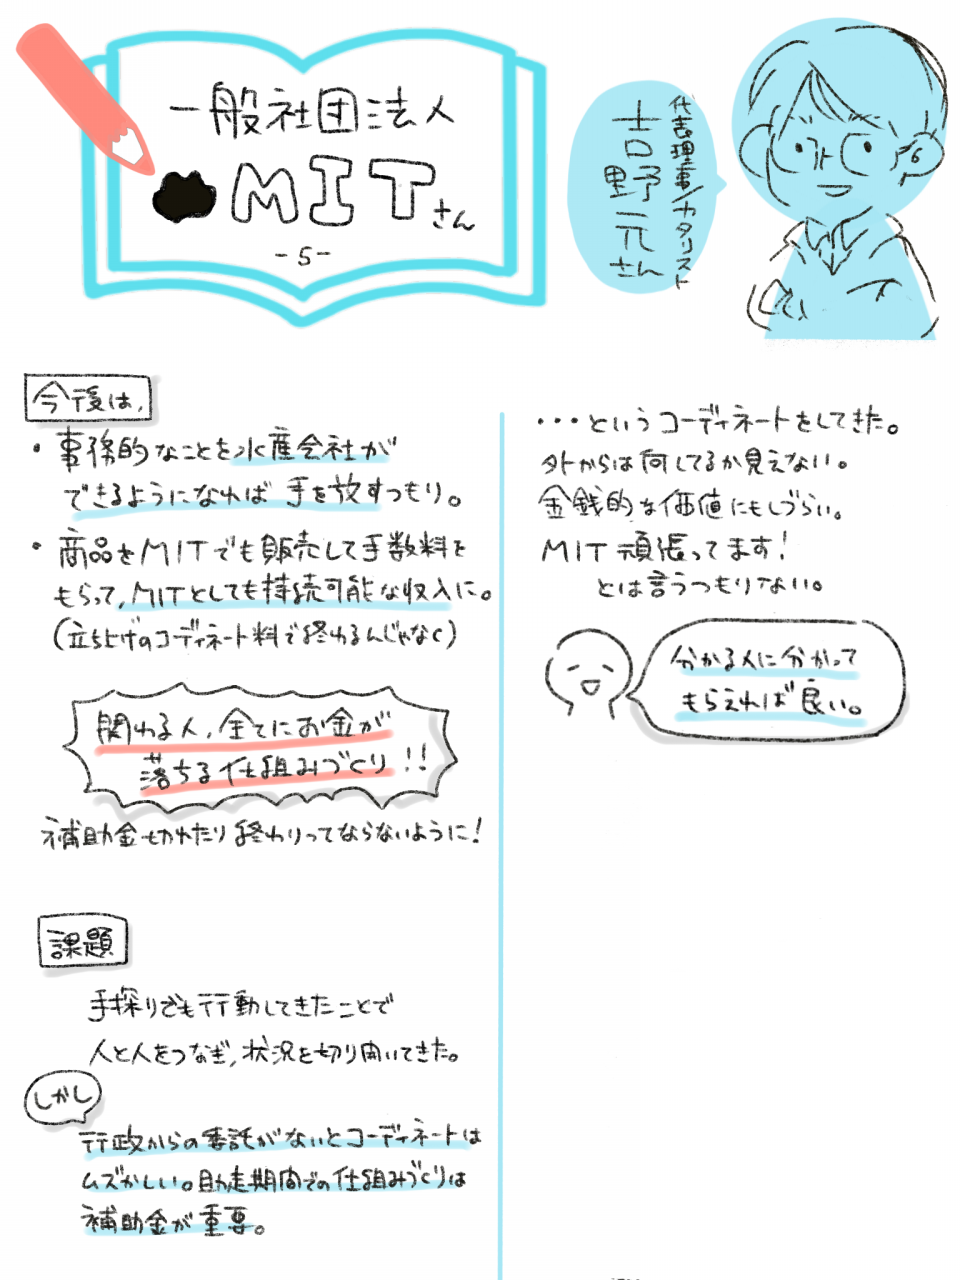 一般社団法人
MITさん
-5-
代表理事/カタリスト
吉野元さん
今後は、
・事務的なことを水産会社が
できるようになれば 手を放すつもり。
・商品をMITでも販売して手数料を
もらって、MITとしても持続可能な収入に。
(立ち上げのコーディネート料で終わるんじゃなく)
関わる人、全てにお金が
落ちる仕組みづくり!!
補助金切れたり終わりってならないように!
課題
手探りでも行動してきたことで
人と人をつなぎ、状況を切り開いてきた。
しかし
行政からの委託がないとコーディネートは
ムズかしい。助走期間での仕組みづくりは
補助金が重要。
・・・というコーディネートをしてきた。
外からは何してるか見えない。
金銭的な価値にもしづらい。
MIT頑張ってます!
とは言うつもりない。
分かる人に分かって
もらえれば良い。